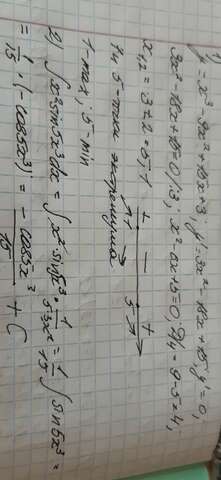 1)
y = x³ - 9x² + 15x + 3, y' = 3x² - 18x + 15, y' = 0,
3x² - 18x + 15 = 0 /:3; x² - 6x + 5 = 0, D/4 = 9 - 5 = 4;
x₁,₂ = 3 ± 2 = 5; 1
+ - +
1 5
1 и 5 - точки экстремума
1 - max; 5 - min
2) ∫ x² sin 5x³ dx = ∫ x² · sin 5x³ · 1/(5·3x²) = 1/15 ∫ sin 5x³ =
= 1/15 · (- cos 5x³) = - cos 5x³ / 15 + C